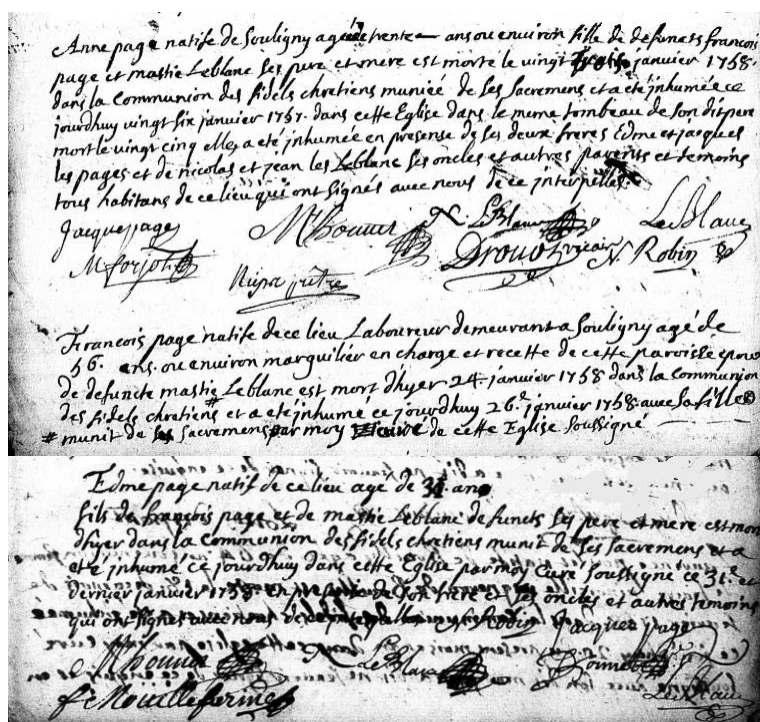 Anne page native de Souligny agée de trente ans ou environ fille de defuncts francois
page et mastie Leblanc ses pere et mere est morte le vingt janvier 1758.
dans la Communion des fidels chretiens muniée de ses Sacremens et a eté jnhumée ce
jourdhuy vingt six janvier 1757. dans cette Eglise dans le meme tombeau de son dit pere
mort le vingt cinq elle a eté jnhumée en presense de ses deux freres Edme et jacques
les pages et de nicolas et jean les Leblanc ses oncles et autres parents et temoins
tous habitans de ce lieu qui ont signés avec nous de ce jnterpellés.
Jacque page N. LeBlanc LeBlanc
Drouot vicaire N Robin
prêtre
Francois page natif de ce lieu Laboureur demeurant a Souligny agé de
56. ans. ou environ marguilier en charge et recette de cette paroisse epoux
de defuncte mastie Leblanc est mort dhyer 24. janvier 1758 dans la Communion
des fidels chretiens # et a eté jnhumé ce jourdhuy 26.e janvier 1758. avec sa fille
# munit de ses sacremens par moy de cette Eglise soussigné
Edme page natif de ce lieu agé de ans
fils de françois page et de mastie Leblanc defuncts ses pere et mere est mort
dhyer dans la Communion des fidels chretiens munit de ses sacremens et a
eté jnhumé ce jourdhuy dans cette Eglise par moy Curé soussigné ce 31.e et
dernier janvier 1758. en presense de son frere et oncles et autres temoins
qui ont signés avec nous N Robin Jacques page
N LeBlanc
LeBlanc